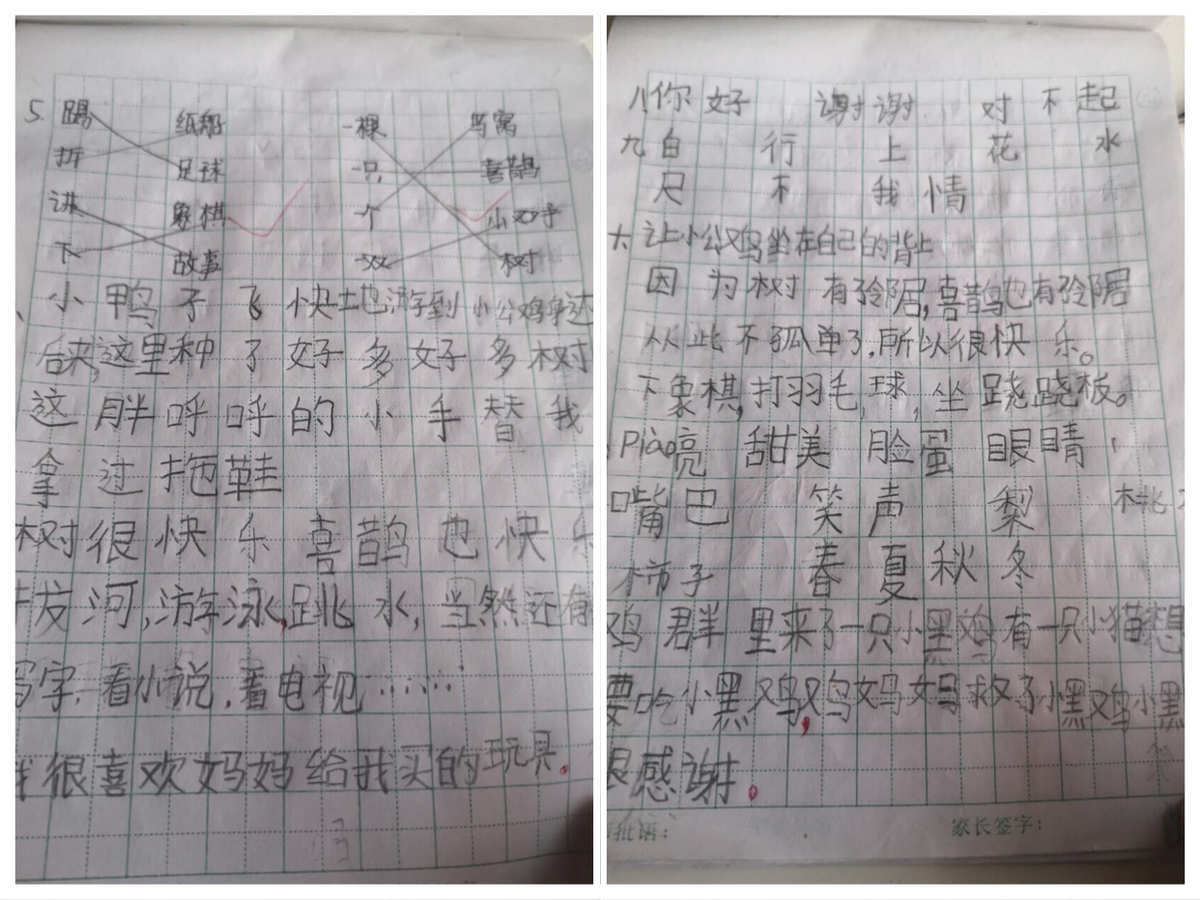 5. 踢 纸船 一棵 鸟窝
折 足球 一只 喜鹊
讲 象棋 一个 小对手
下 故事 一双 树
小鸭子飞快土也游到小公鸡身边
后来,这里种了好多好多树
这胖呼呼的小手替我
拿过拖鞋
树很快乐喜鹊也快乐
河,游泳,跳水,当然还有
写字,看小说,看电视……
我很喜欢妈妈给我买的玩具。
八你好 谢谢 对不起
九白 行 上 花 水
尺 不 我 情
十、让小公鸡坐在自己的背上
因为树有邻居,喜鹊也有邻居
从此不孤单了,所以很快乐。
下象棋,打羽毛,球,坐跷跷板。
Piào亮 甜美 脸蛋 眼睛
嘴巴 笑声 梨 桃
柿子 春夏秋冬
鸡群里来了一只小黑鸡有一只小猫想
要吃小黑鸡,鸡妈妈救了小黑鸡小黑
很感谢。
批语: 家长签字: